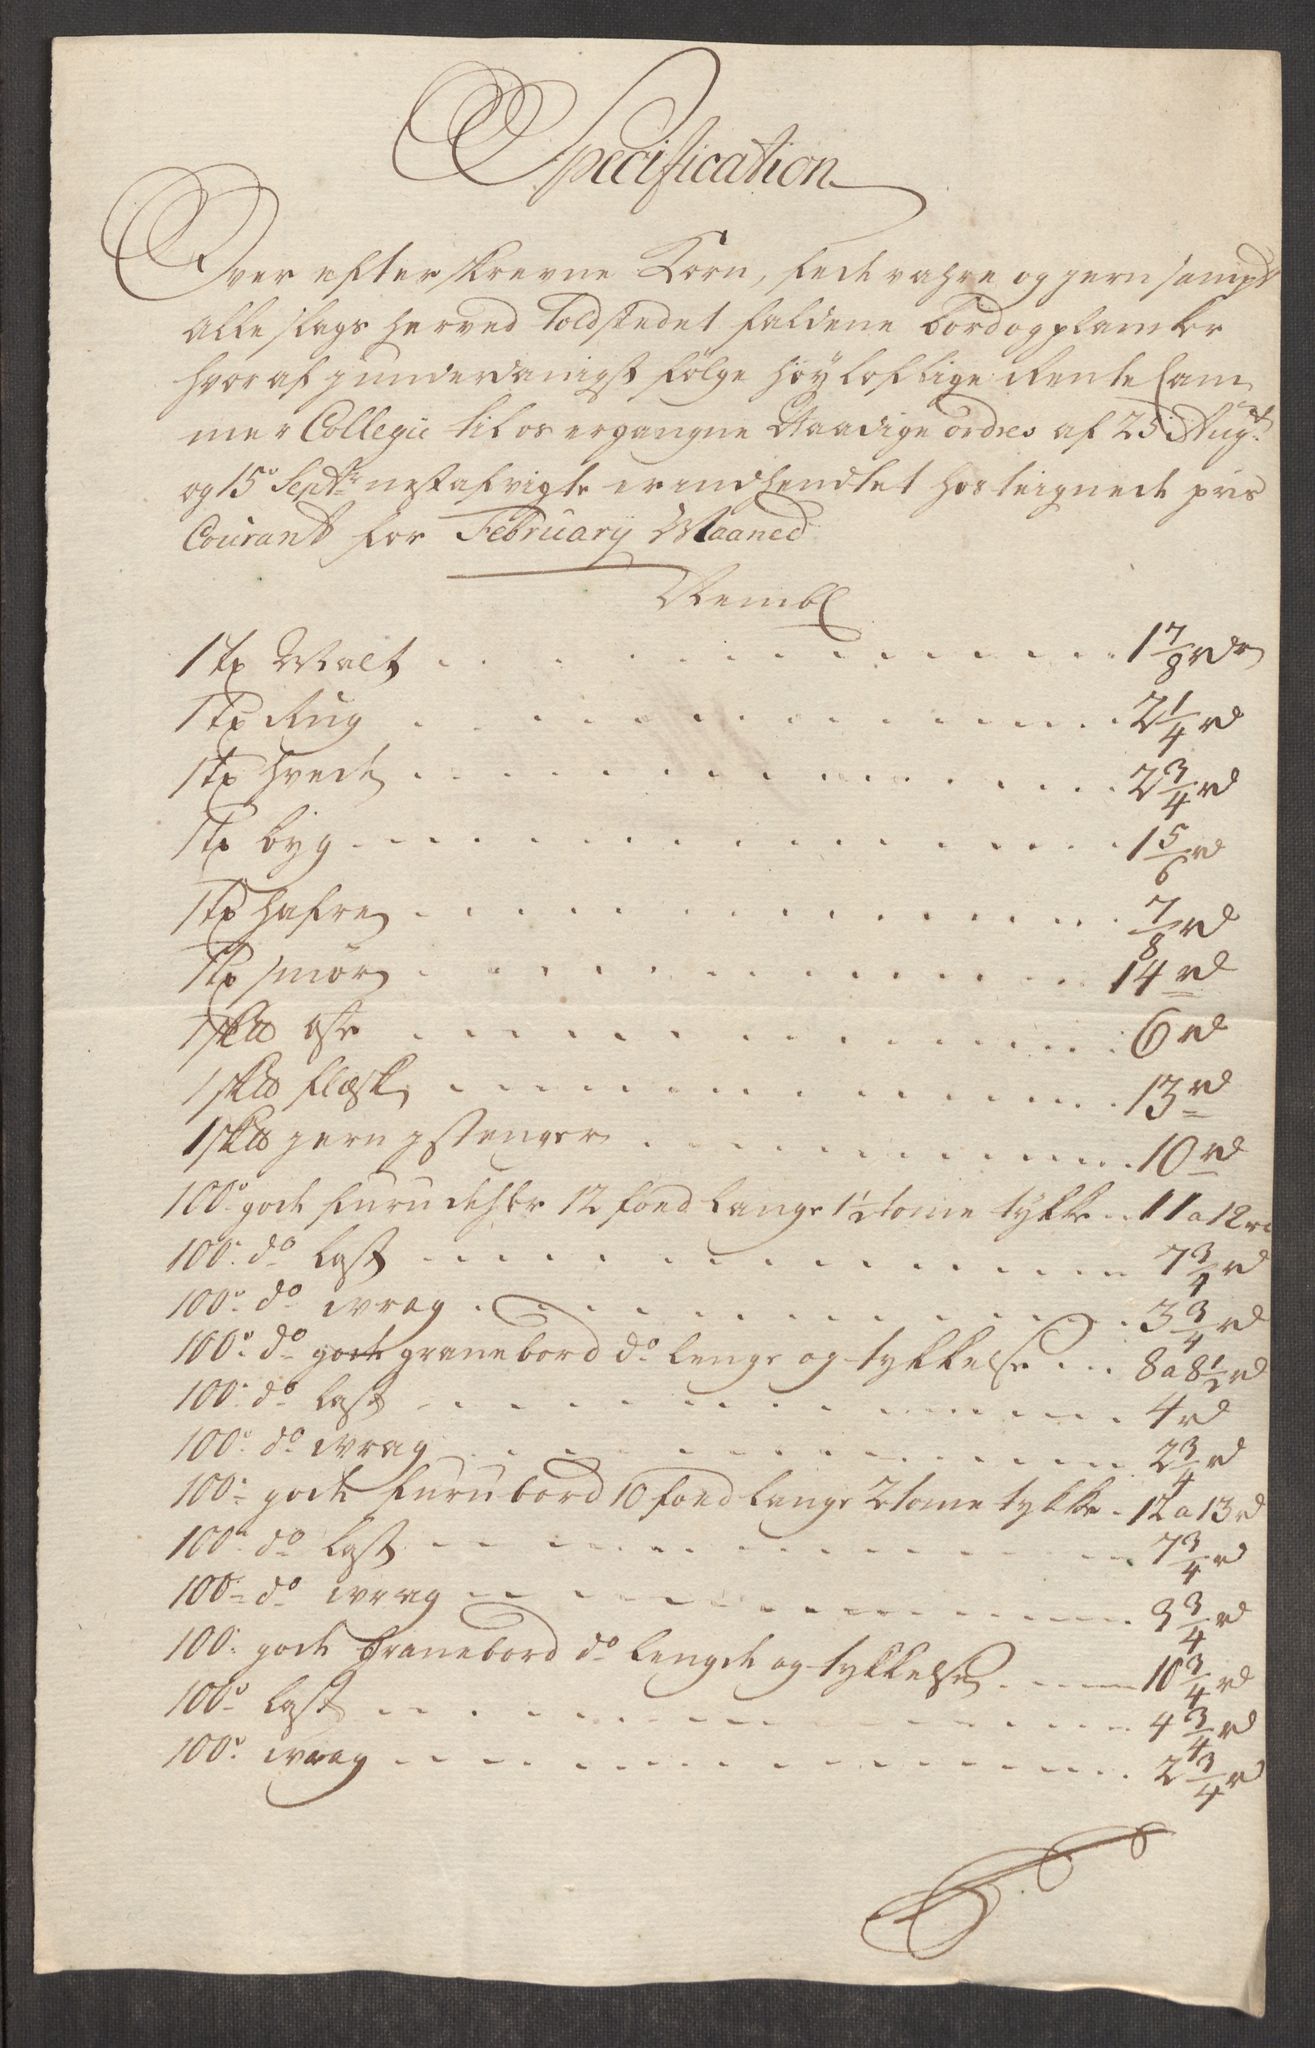 Specification
Over efterskrevne Korn, fede vahre og jern sampt
alle slags herved Toldstedet faldene bord og plancker
hvoraf j underdanigst følge höyloflige Rente Cam
mer Collegie til os ergangne Naadige ordres af 25 Augti
og 15º Septbr nestafvigte er indhendtet hosteignede pris
Courant for February Maaned
Nembl
1 tø Malt 1 7/8 rdr
1 tø Rug 2 1/4 rd
1 tø hvede 2 3/4 rd
1 tø byg 1 5/6 rd
1 tø hafre 7/8 rd
1 tø smör 14 rd
1 sk℔ ost 6 rd
1 sk℔ flæsk 13 rd
1 sk℔ jern j stenger 10 rd
100º gode furu dehler 12 foed lange 1 1/2 tome tykke 11 a 12 rd
100º dº last 7 3/4 rd
100º dº wrag 3 3/4 rd
100º dº gode granebord dº lenge og tykkelse 8 a 8 1/2 rd
100º dº last 4 rd
100º dº wrag 2 3/4 rd
100º gode furubord 10 foed lange 2 tome tykke 12 a 13 rd
100º dº last 7 3/4 rd
100º dº wrag 3 3/4 rd
100º gode granebord dº lengde og tykkelse 10 3/4 rd
100º last 4 3/4 rd
100º wrag 2 3/4 rd